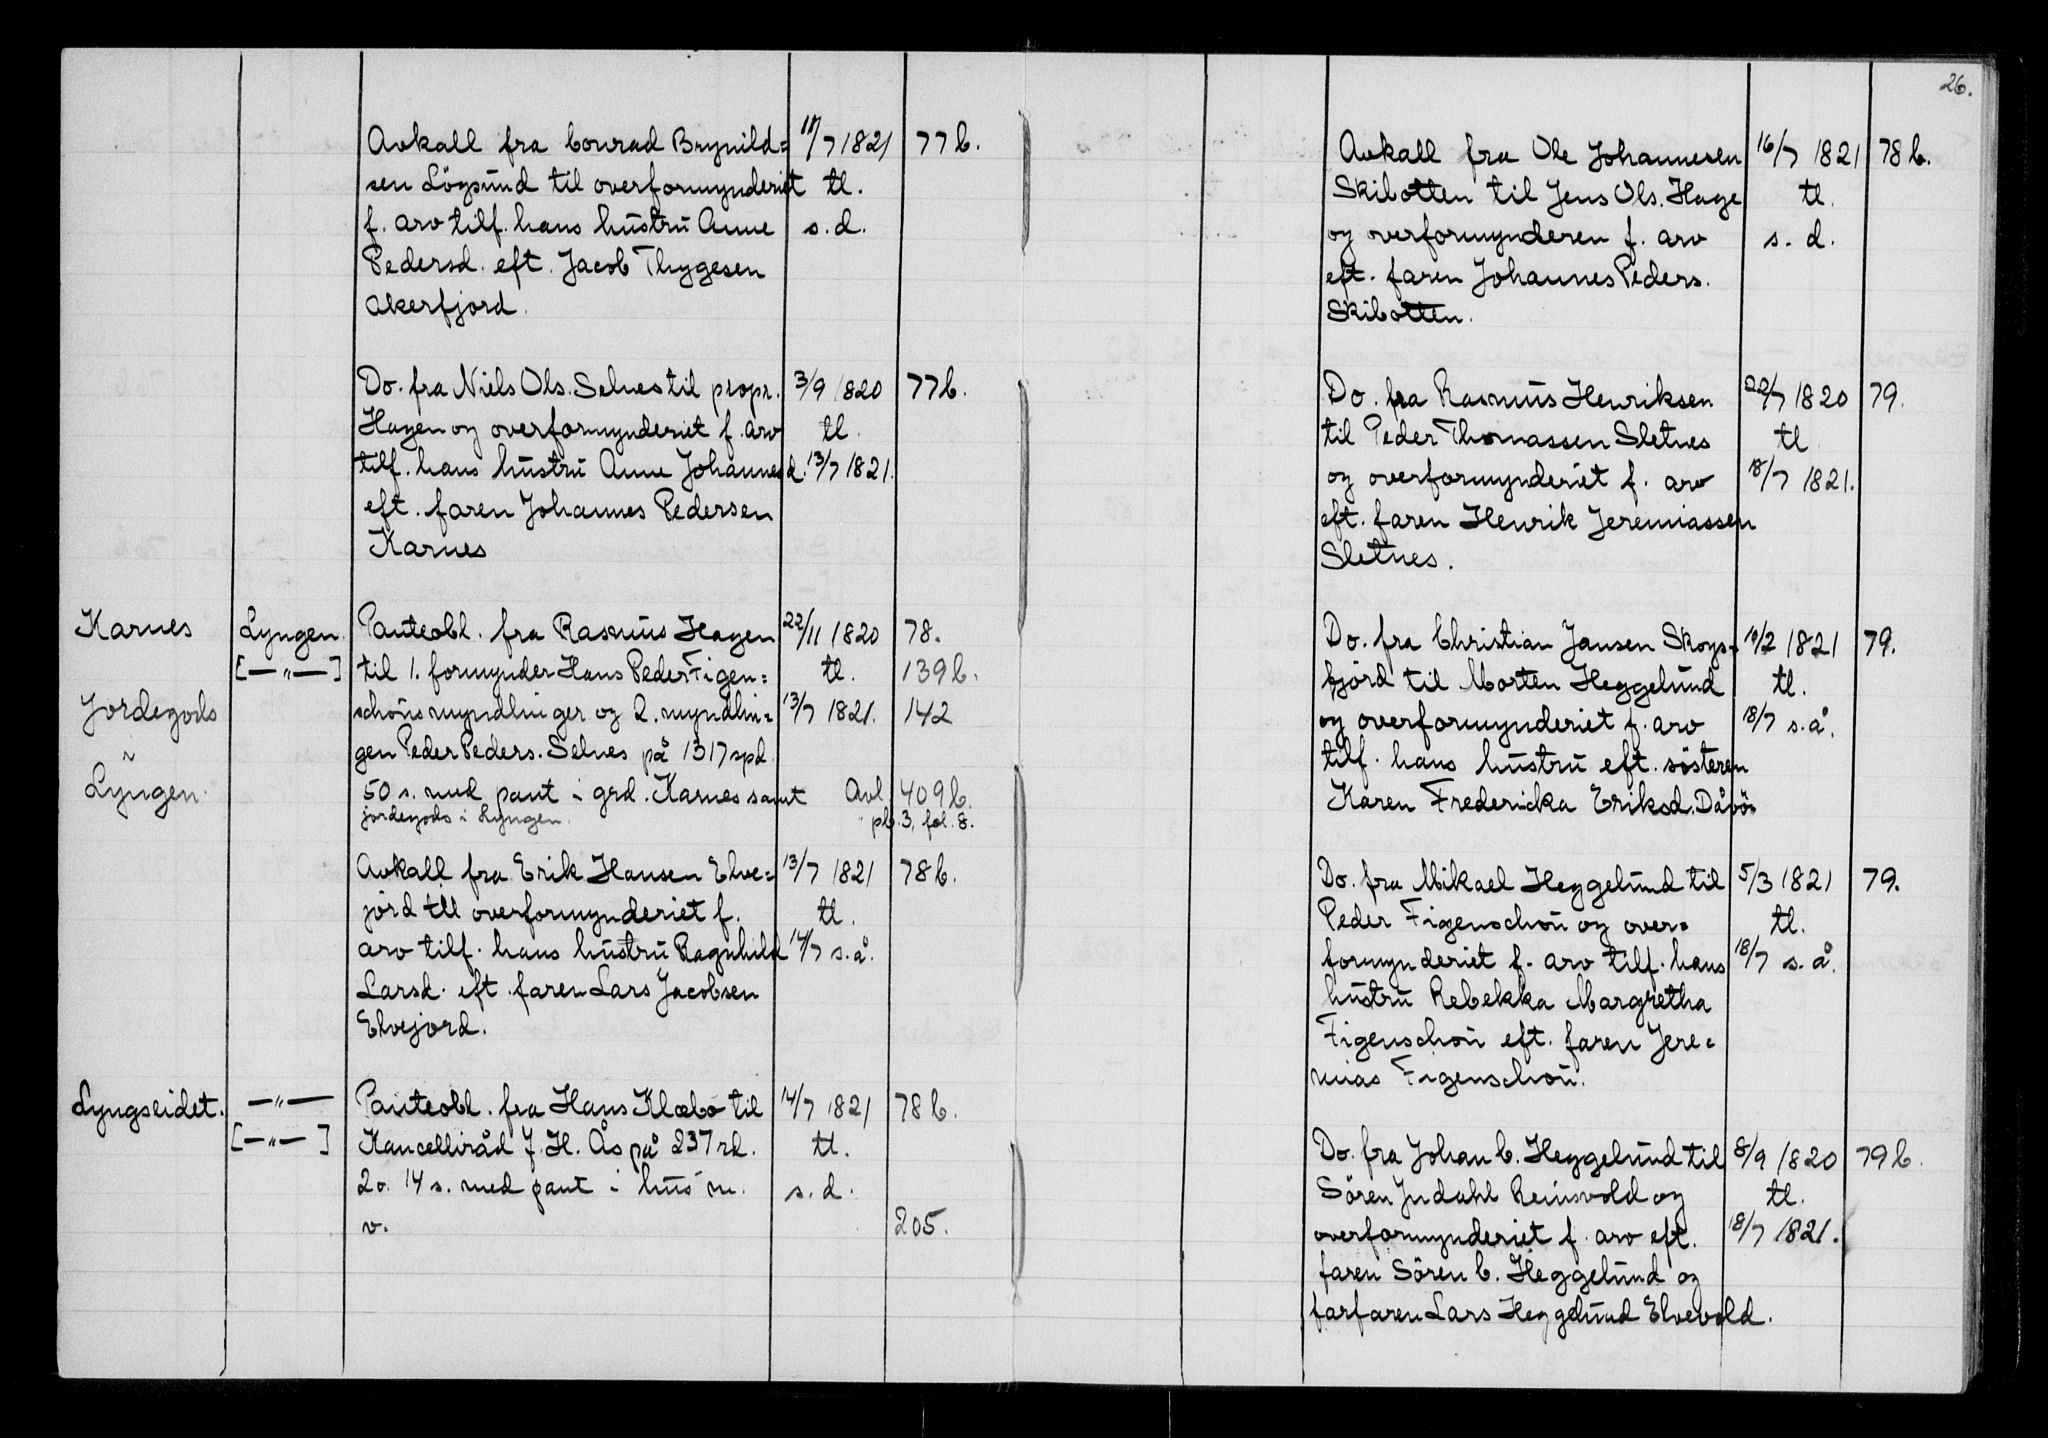 26.
Avkall fra Conrad Brynild= 11/7 1821 77b.
sen Lögsund til overformynderiet tl.
f. arv tilf. hans hustru Anne s. d.
Pedersd. eft. Jacob Thygesen
Akerfjord.
Do. fra Niels Ols. Selnes til propr. 3/9 1820 77b.
Hagen og overformynderiet f. arv tl.
tilf. hans hustru Anne Johannesd. 13/7 1821.
eft. faren Johannes Pedersen
Karnes
Karnes Lyngen. Panteobl. fra Rasmus Hagen 22/11 1820 78.
[—"—] til 1. formynder Hans Peder Figen= tl. 139b.
Jordegods schöns myndlinger og 2. myndlin= 13/7 1821. 142
i gen Peder Peders. Selnes på 1317 spd.
Lyngen. 50 s. med pant i grd. Karnes samt Avl. 409b.
jordegods i Lyngen. " pb. 3, fol. 8.
Avkall fra Erik Hansen Elve= 13/7 1821 78b.
jord til overformynderiet f. tl.
arv tilf. hans hustru Ragnhild 14/7 s.å.
Larsd. eft. faren Lars Jacobsen
Elvejord.
Lyngseidet. —"— Panteobl. fra Hans Klæbo til 14/7 1821 78b.
[—"—] Kancelliråd J. H. Ås på 237 rd. tl.
2 o. 14 s. med pant i hus m. s. d.
v. 205.
Avkall fra Ole Johannesen 16/7 1821 78b.
Skibotten til Jens Ols. Hage tl.
og overformynderen f. arv s. d.
eft. faren Johannes Peders.
Skibotten.
Do. fra Rasmus Henriksen 22/7 1820 79.
til Peder Thomassen Sletnes tl
og overformynderiet f. arv 18/7 1821.
eft. faren Henrik Jeremiassen
Sletnes.
Do. fra Christian Jansen Skogs= 19/2 1821 79.
fjord til Morten Heggelund tl.
og overformynderiet f. arv 18/7 s.å.
tilf. hans hustru eft. søsteren
Karen Fredericka Eriksd. Dåbö.
Do. fra Mikael Heggelund til 5/3 1821 79.
Peder Figenschou og over= tl.
formynderiet f. arv tilf. hans 18/7 s.å.
hustru Rebekka Margretha
Figenschou eft. faren Jere=
mias Figenschou.
Do. fra Johan C. Heggelund til 8/9 1820 79b.
Sören Jndahl Reinvold og tl.
overformynderiet f. arv eft. 18/7 1821.
faren Sören C. Heggelund og
farfaren Lars Heggelund Elvevold.